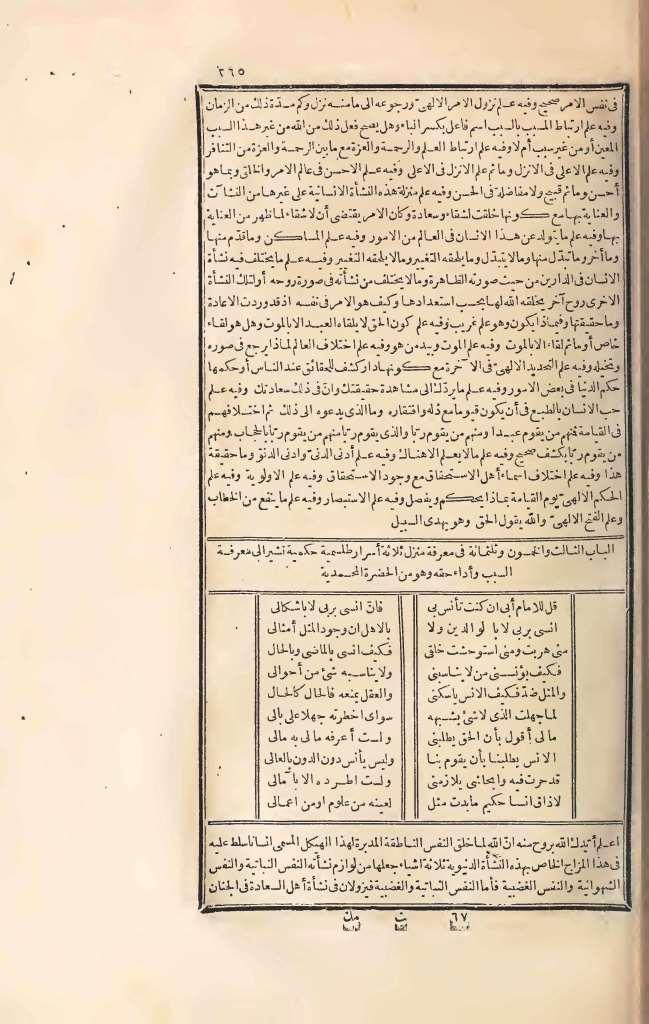 ٢٦٥
فى نفس الامر صحيح وفيه علم نزول الامر الالهىّ ورجوعه الى ما منه نزل وكم مدّة ذلك من الزمان
وفيه علم ارتباط المسبب بالسبب اسم فاعل بكسر الباء وهل يصح فعل ذلك من الله من غير هذا السبب
المعين أو من غير سبب أم لا وفيه علم ارتباط العلم والرحمة والعزة مع ما بين الرحمة والعزة من التنافر
وفيه علم الاعلى فى الانزل وما ثم علم الانزل فى الاعلى وفيه علم الاحسن فى عالم الامر والخلق وبما هو
أحسن وما ثم قبيح ولا مفاضلة فى الحسن وفيه علم منزلة هذه النشأة الانسانية على غيرها من النشآت
والعناية بها مع كونها خلقت لشقاء وسعادة وكان الامر يقتضى أن لا شقاء لما ظهر من العناية
بها وفيه علم ما يتولد عن هذا الانسان فى العالم من الامور وفيه علم المساكن وما قدّم منها
وما أخر وما تبدّل منها وما لا يتبدّل وما يلحقه التغيير وما لا يلحقه التغيير وفيه علم ما يختلف فيه نشأة
الانسان فى الدارين من حيث صورته الظاهرة وما لا يختلف من نشأته فى صورة روحه أو لتلك النشأة
الاخرى روح آخر يخلقه الله لها بحسب استعدادها وكيف هو الامر فى نفسه اذ قد وردت الاعادة
وما حقيقتها وفيماذا يكون وهو علم غريب وفيه علم كون الحق لا يلقاه العبد الا بالموت وهل هو لقاء
خاص أو ما ثم لقاء الا بالموت وفيه علم الموت وبيد من هو وفيه علم اختلاف العالم لماذا يرجع فى صوره
وتخيله وفيه علم التحديد الالهىّ فى الآخرة مع كونها دار كشف للحقائق عند الناس أو حكمها
حكم الدنيا فى بعض الامور وفيه علم ما يردّك الى مشاهدة حقيقتك وانّ فى ذلك سعادتك وفيه علم
حب الانسان بالطبع فى أن يكون قيوما مع ذله وافتقاره وما الذى يدعوه الى ذلك ثم اختلافهم
فى القيامة فمنهم من يقوم عبدا ومنهم من يقوم ربا والذى يقوم ربا منهم من يقوم ربا بالحجاب ومنهم
من يقوم ربا بكشف صحيح وفيه علم ما لا يعلم الا هناك وفيه علم أدنى الدنىّ وادنى الدنوّ وما حقيقة
هذا وفيه علم اختلاف اسماء أهل الاستحقاق مع وجود الاستحقاق وفيه علم الاولوية وفيه علم
الحكم الالهىّ يوم القيامة بماذا يحكم ويفصل وفيه علم الاستبصار وفيه علم ما ينفع من الخطاب
وعلم الفتح الالهىّ والله يقول الحق وهو يهدى السبيل
الباب الثالث والخمسون وثلثمائة فى معرفة منزل ثلاثة أسرار طلسمية حكمية تشير الى معرفة
السبب وأداء حقه وهو من الحضرة المحمدية
قل للامام أبى ان كنت تأنس بى فانّ انسى بربى لا باشكالى
انسى بربى لا بالوالدين ولا بالاهل ان وجود المثل أمثالى
منى هربت ومنى استوحشت خلقى فكيف انسى بالماضى وبالحال
فكيف يؤنسنى من لا يناسبنى ولا يناسبه شئ من أحوالى
والمثل ضدّ فكيف الانس ياسكنى والعقل يمنعه فالحال كالحال
لما جهلت الذى لا شئ يشبهه سواى اخطرته جهلا على بالى
مالى أقول بأن الحق يطلبنى ولست أعرفه ماله به مالى
الانس يطلبنا بأن يقوم بنا وليس يأنس دون الدون بالعالى
قد حرت فيه وايحاشى يلازمنى ولست اطرده الا بآمالى
لا ذاق انسا حكيم ما بدت مثل لعينه من علوم او من اعمالى
اعلم أيدك الله بروح منه انّ الله لما خلق النفس الناطقة المدبرة لهذا الهيكل المسمى انسانا سلط عليه
فى هذا المزاج الخاص بهذه النشأة الدنيوية ثلاثة اشياء جعلها من لوازم نشأته النفس النباتية والنفس
الشهوانية والنفس الغضبية فأما النفس النباتية والغضبية فيزولان فى نشأة أهل السعادة فى الجنان
٦٧ ت مك